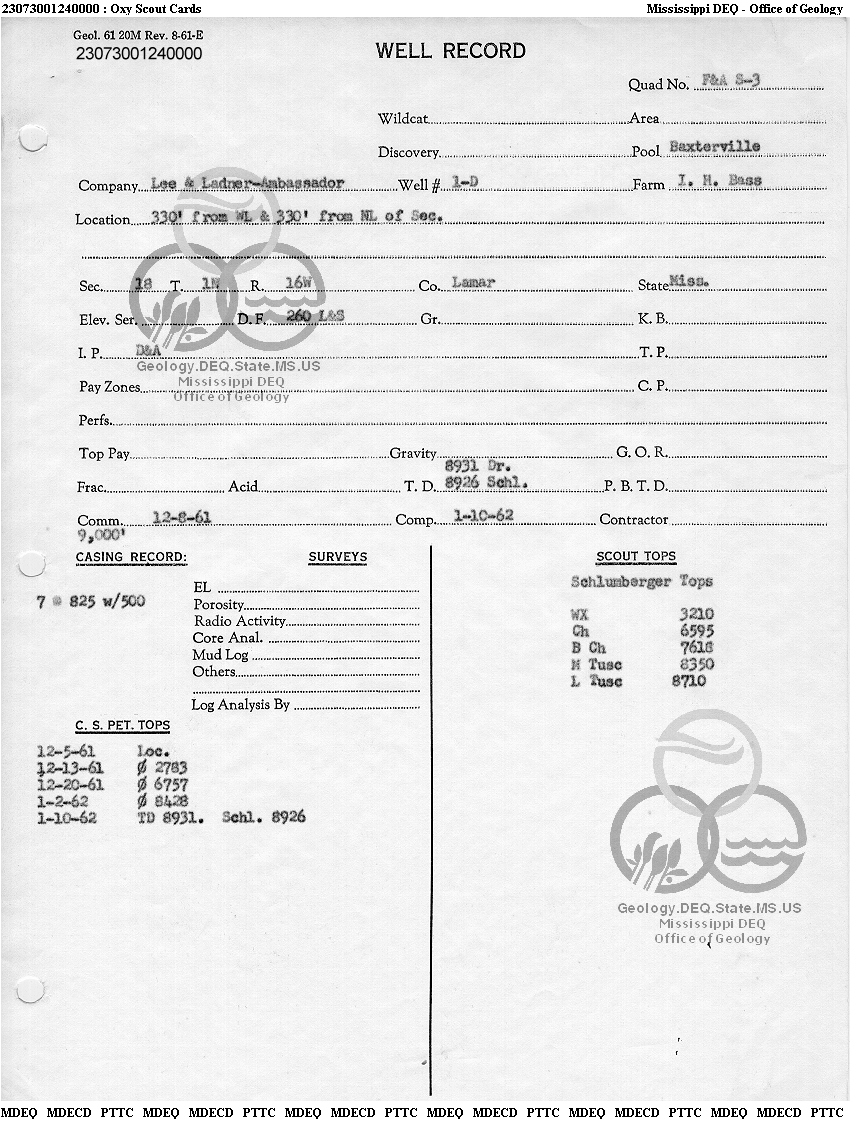 23073001240000 : Oxy Scout Cards Mississippi DEQ - Office of Geology
Geol. 61 20M Rev. 8-61-E
23073001240000
WELL RECORD
Quad No. F&A S-3
Wildcat Area
Discovery Pool Baxterville
Company Lee & Ladner-Ambassador Well # 1-D Farm I. H. Bass
Location 330' from WL & 330' from NL of Sec.
Sec. 18 T. 1N R. 16W Co. Lamar State Miss.
Elev. Ser. D. F. 260 L&S Gr. K. B.
I. P. D&A T. P.
Geology.DEQ.State.MS.US
Mississippi DEQ
Office of Geology
Pay Zones C. P.
Perfs.
Top Pay Gravity G. O. R.
8931 Dr.
Frac. Acid T. D. 8926 Schl. P. B. T. D.
Comm. 12-8-61 Comp. 1-10-62 Contractor
9,000'
CASING RECORD: SURVEYS SCOUT TOPS
Schlumberger Tops
EL
7 @ 825 w/500
Porosity
Radio Activity
Core Anal.
Mud Log
Others
Log Analysis By
WX 3210
Ch 6595
B Ch 7618
M Tusc 8350
L Tusc 8710
C. S. PET. TOPS
12-5-61 Loc.
12-13-61 Ø 2783
12-20-61 Ø 6757
1-2-62 Ø 8428
1-10-62 TD 8931. Schl. 8926
Geology.DEQ.State.MS.US
Mississippi DEQ
Office of Geology
MDEQ MDECD PTTC MDEQ MDECD PTTC MDEQ MDECD PTTC MDEQ MDECD PTTC MDEQ MDECD PTTC MDEQ MDECD PTTC